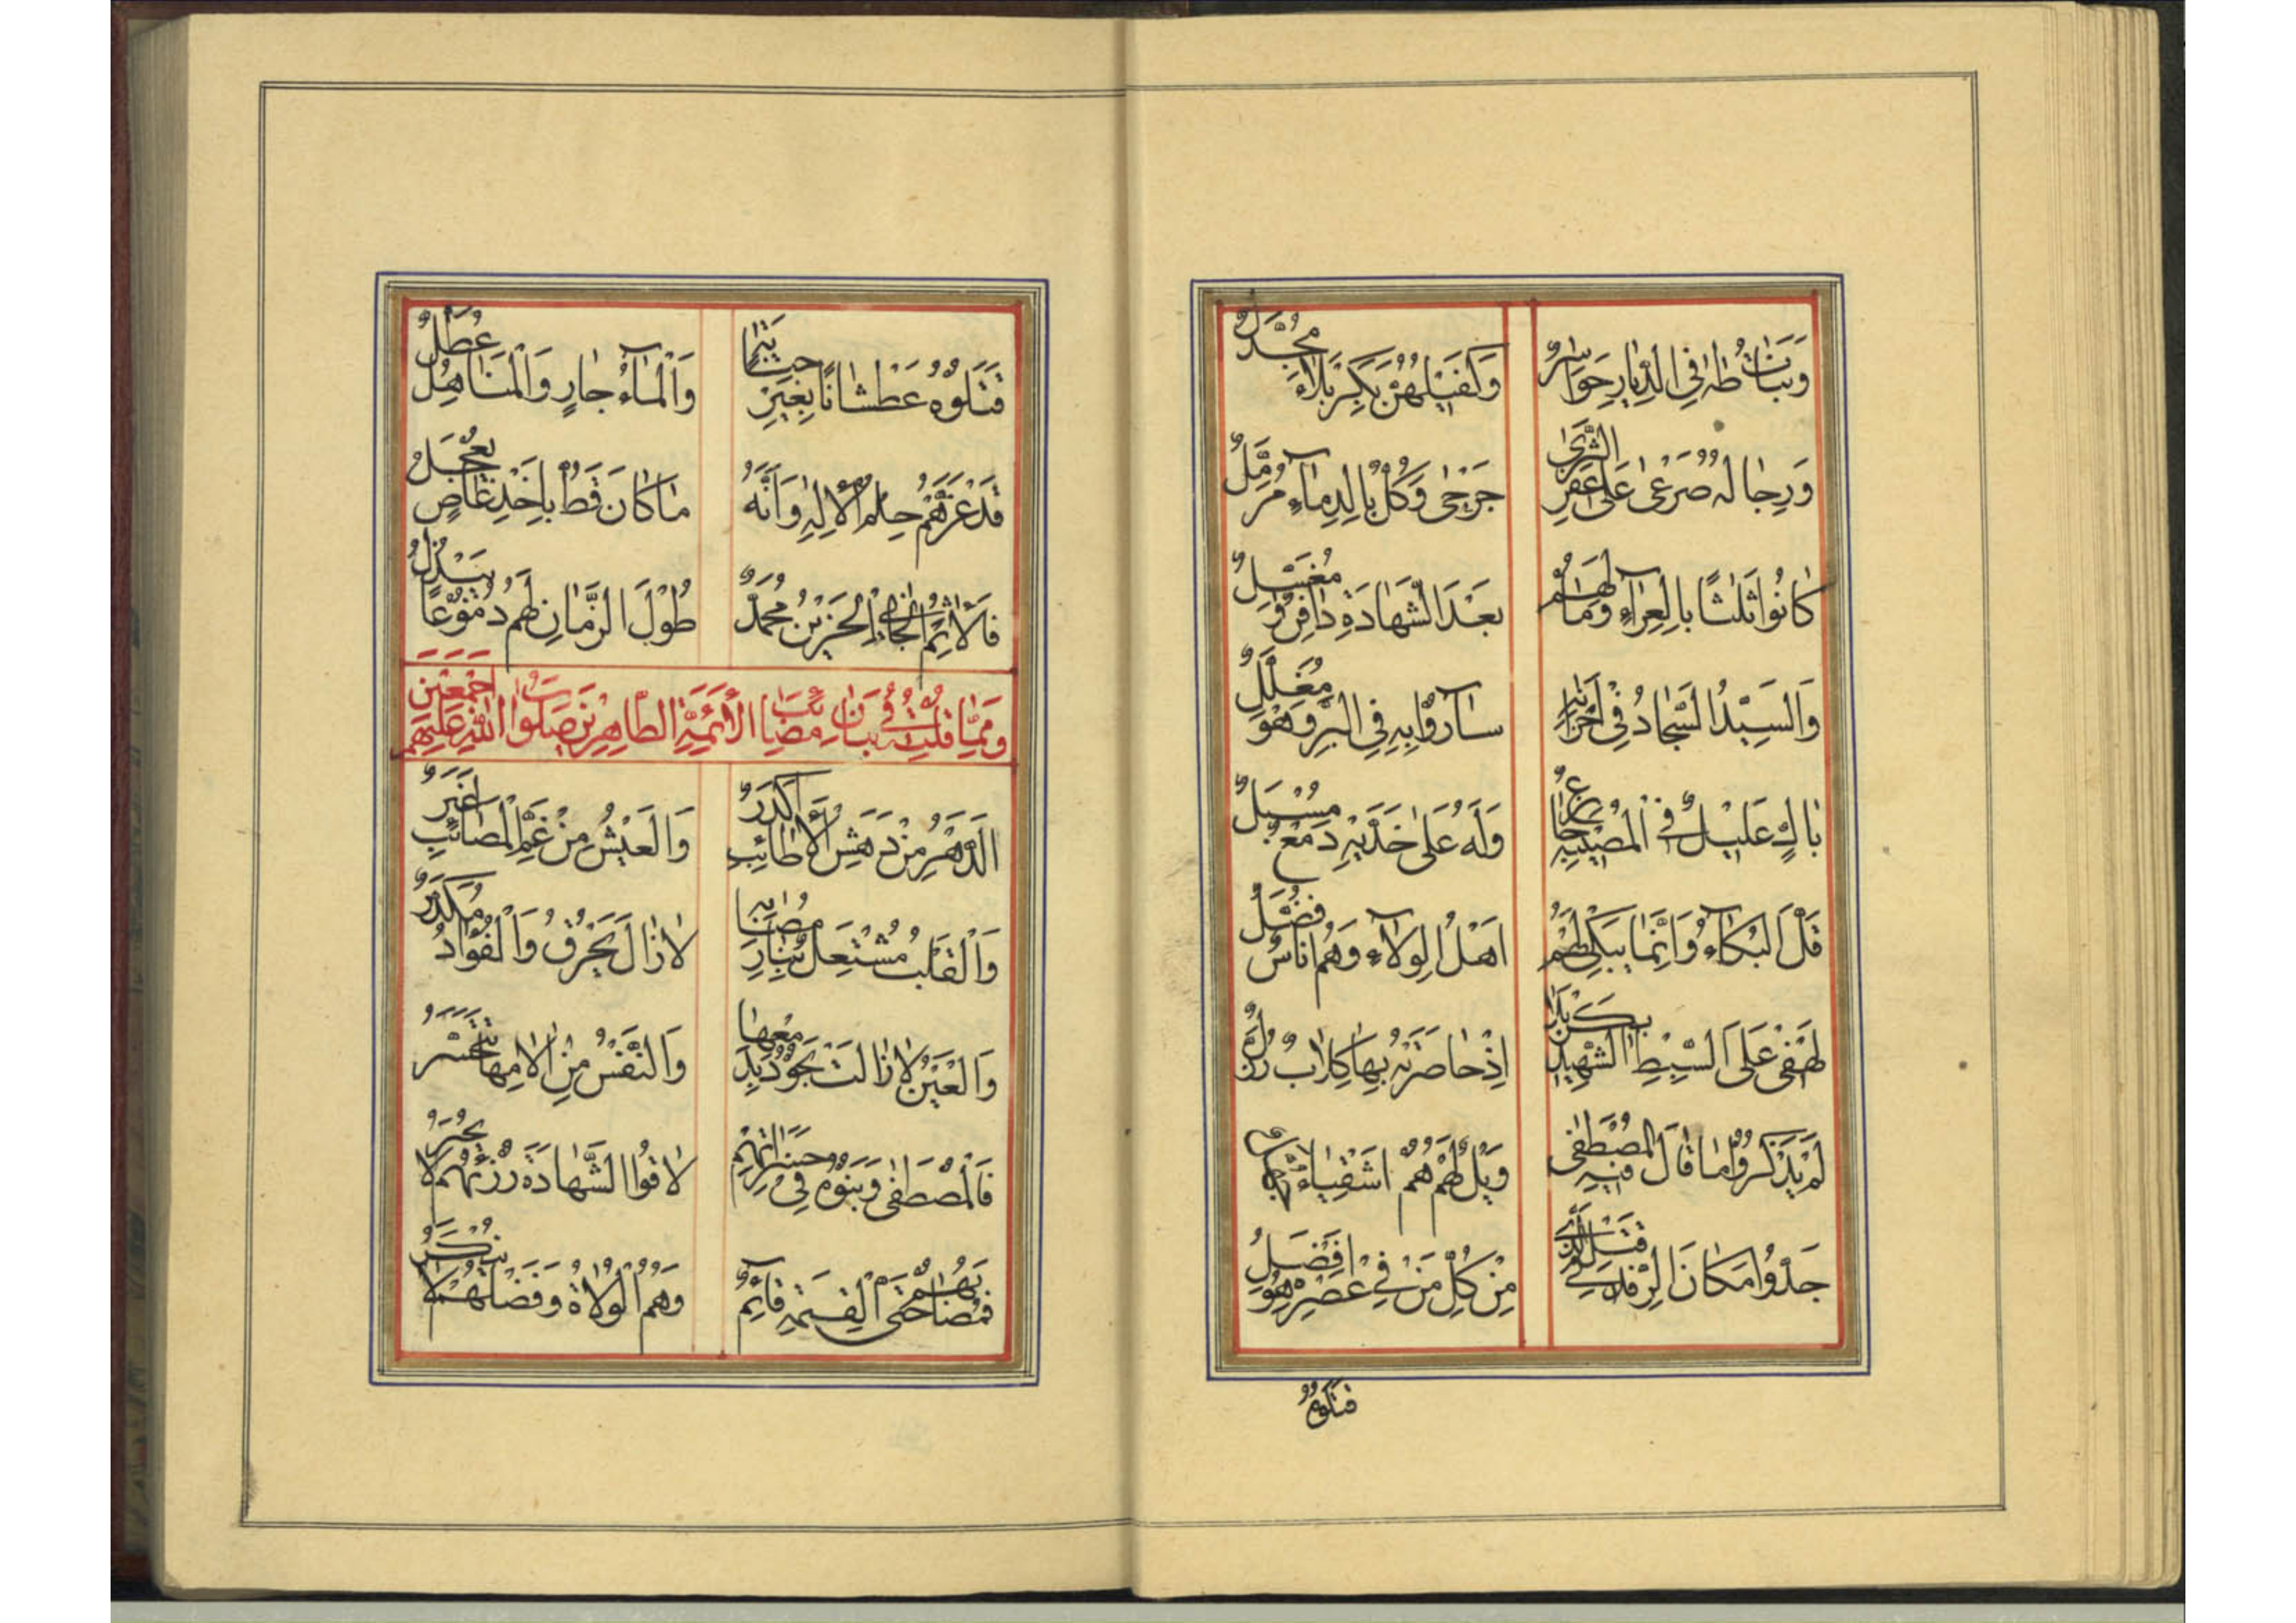 وَبَنَاتُ طٰهٰ فِي الدِّيَارِ حَوَاسِرٌ وَكَفَيْلُهُنَّ بِكَرْبَلَاءَ مُجَدَّلٌ
وَرِجَالُهُ صَرْعٰى عَلٰى عَفَرِ الثَّرٰى جَرْحٰى وَكُلٌّ بِالدِمَآءِ مُرَمَّلٌ
كَانُوا ثَلٰثًا بِالْعِرَآءِ وَمَا لَهُمْ بَعْدَ الشَّهَادَةِ دَافِنٌ وَ مُغَسِّلٌ
وَالسَيِّدُ السَّجَادُ فِي اَحْزَانِهِ سَارُوْا بِهِ فِي الْبَرِّ وَهُوَ مُغَلَّلٌ
بَاكٍ عَلِيْلٌ فِي الْمُصِيْبَةِ وَلَهُ عَلٰى خَدَّيْهِ دَمْعٌ مُسْبَلٌ
قَلَّ الْبُكَآءُ وَاِنَّمَا يَبْكِي لَهُمْ اَهْلُ الْوِلَآءِ وَهُمْ اُنَاسٌ فُضَّلُ
لَهْفِي عَلَى السِّبْطِ الشَّهِيْدِ بِكَرْبَلَا اِذْ حَاصَرَتْهُ بِهَا كِلَابٌ
لَمْ يَذْكُرُوْا مَا قَالَ فِيْهِ الْمُصْطَفٰى وَيْلٌ لَهُمْ هُمْ اَشْقِيَاءُ
جَدُّوا مَكَانَ الرِّفْدِ فِي قَتْلِ الَّذِي مِنْ كُلِّ مَنْ فِي عَصْرِهِ هُوَ اَفْضَلُ
قَتَلُوْهُ
قَتَلُوْهُ عَطْشَانًا بِغَيْرِ وَالْمَآءُ جَارٍ وَالْمَنَاهِلُ عُطَّلُ
قَدْ غَرَّهُمْ حِلْمُ الْاِلٰهِ وَاَنَّهُ مَا كَانَ قَطُّ بِاَخْذِ عَاصٍ يَعْجَلُ
مُحَمَّدٌ طُوْلَ الزَّمَانِ لَهُمْ دُمُوْعًا يَسْدُلُ
وَمِمَّا قُلْتُ فِي بَيَانِ مَصَائِبِ الْاَئِمَّةِ الطَّاهِرِيْنَ صَلَوَاتُ اللّٰهِ عَلَيْهِمْ اَجْمَعِيْنَ
اَلدَّهْرُ مِنْ دَهَشِ الْاَطَائِبِ اَكْدَرُ وَالْعَيْشُ مِنْ غَمِّ الْمَصَائِبِ اَغْبَرُ
وَالْقَلْبُ مُشْتَعِلٌ بِنَارِ مُصَابِهِ لَا زَالَ يَحْرُقُ وَالْفُؤَادُ مُكَدَّرُ
وَالْعَيْنُ لَا زَالَتْ تَجُوْدُ بِدَمْعِهَا وَالنَّفْسُ مِنْ اٰلَامِهَا تَتَحَسَّرُ
فَالْمُصْطَفٰى وَبَنُوْهُ فِي حَسَرَاتِهِمْ لَاقُوا الشَّهَادَةَ رُزْئُهُمْ لَا يُحْبَرُ
فَمُصَابُهُمْ حَتَّى الْقِيٰمَةِ قَآئِمٌ وَهُمُ الْوُلَاةُ وَفَضْلُهُمْ لَا يُنْكَرُ